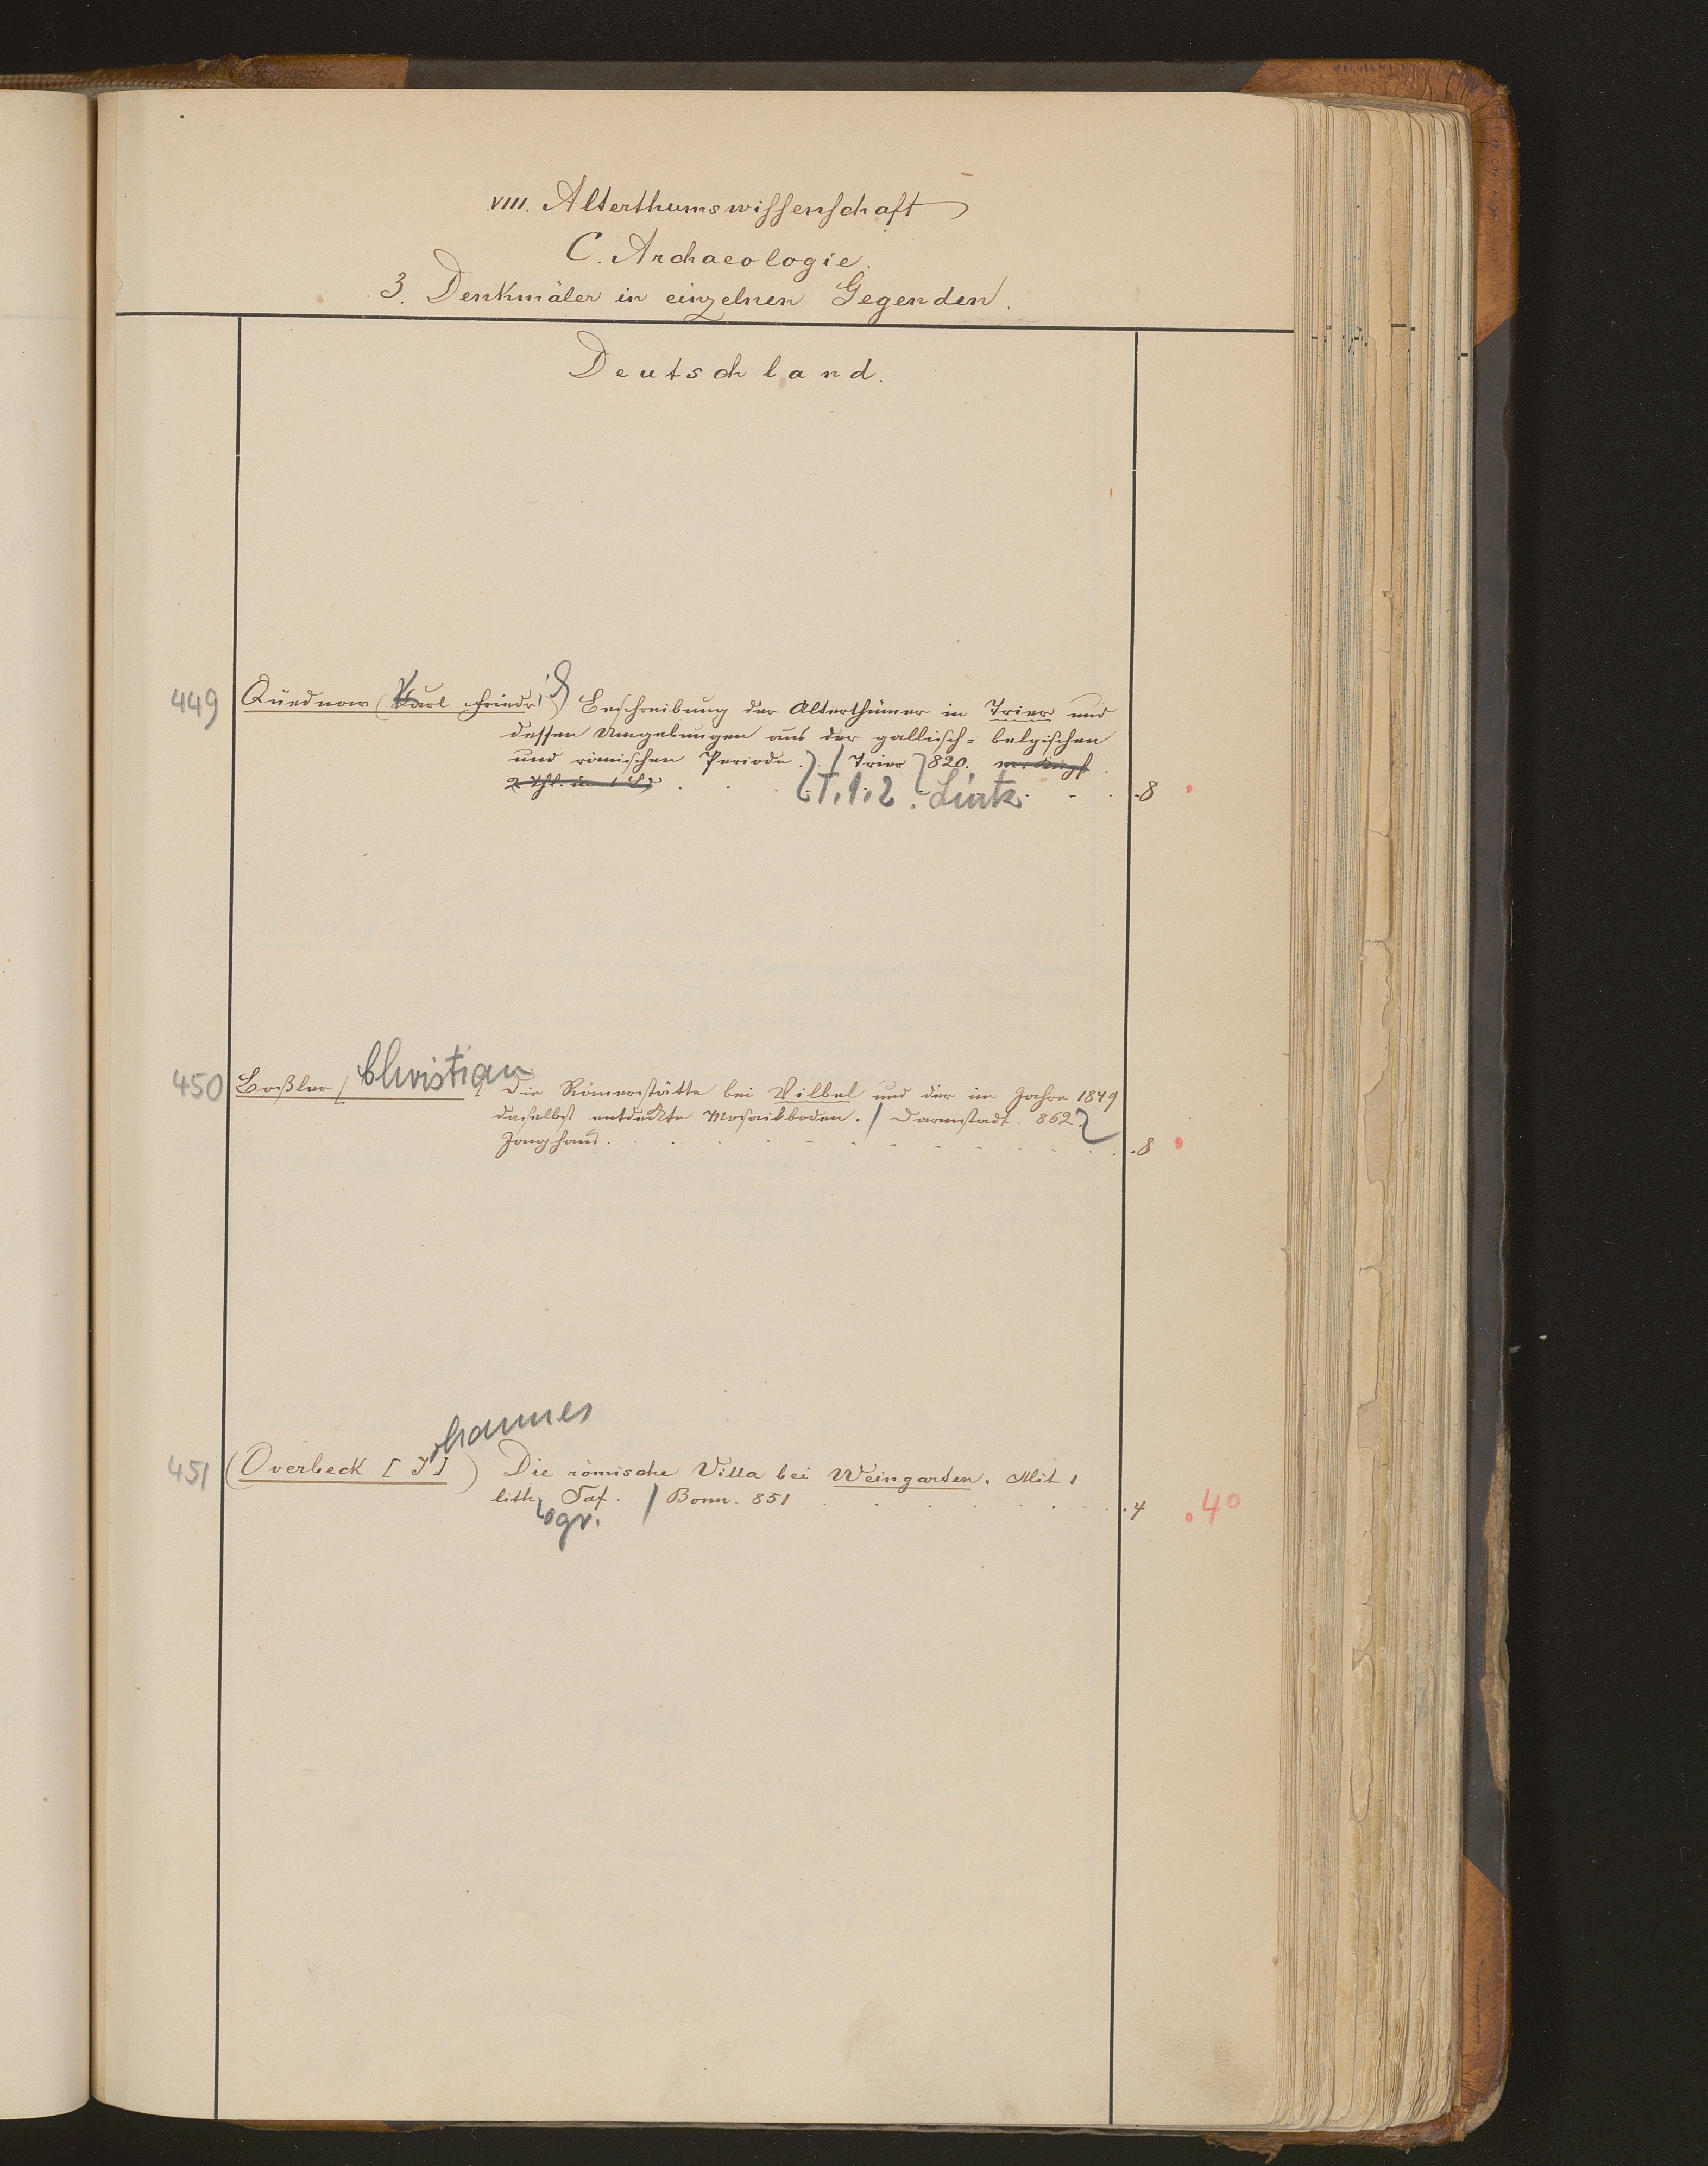 VIII. Alterthumswissenschaft
C. Archaeologie.
3. Denkmäler in einzelnen Gegenden.
Deutschland.
449 Quednow (Karl Friedr.) Beschreibung der Alterthümer in Trier und
dessen Umgebungen aus der gallisch-belgischen
und römischen Periode. / Trier 820. m. Kupf.
2 Thl. in 1 Bd. T. 1. 2. Lintz . 8
Christian
450 Boßler / Die Römerstätte bei Vilbel und der im Jahre 1849
daselbst entdeckte Mosaikboden. / Darmstadt. 862.
Jonghaus. . 8
ohannes
451 (Overbeck [J]) Die römische Villa bei Weingarten. Mit 1
lith. Taf. / Bonn. 851 . 4 . 40
ogr.